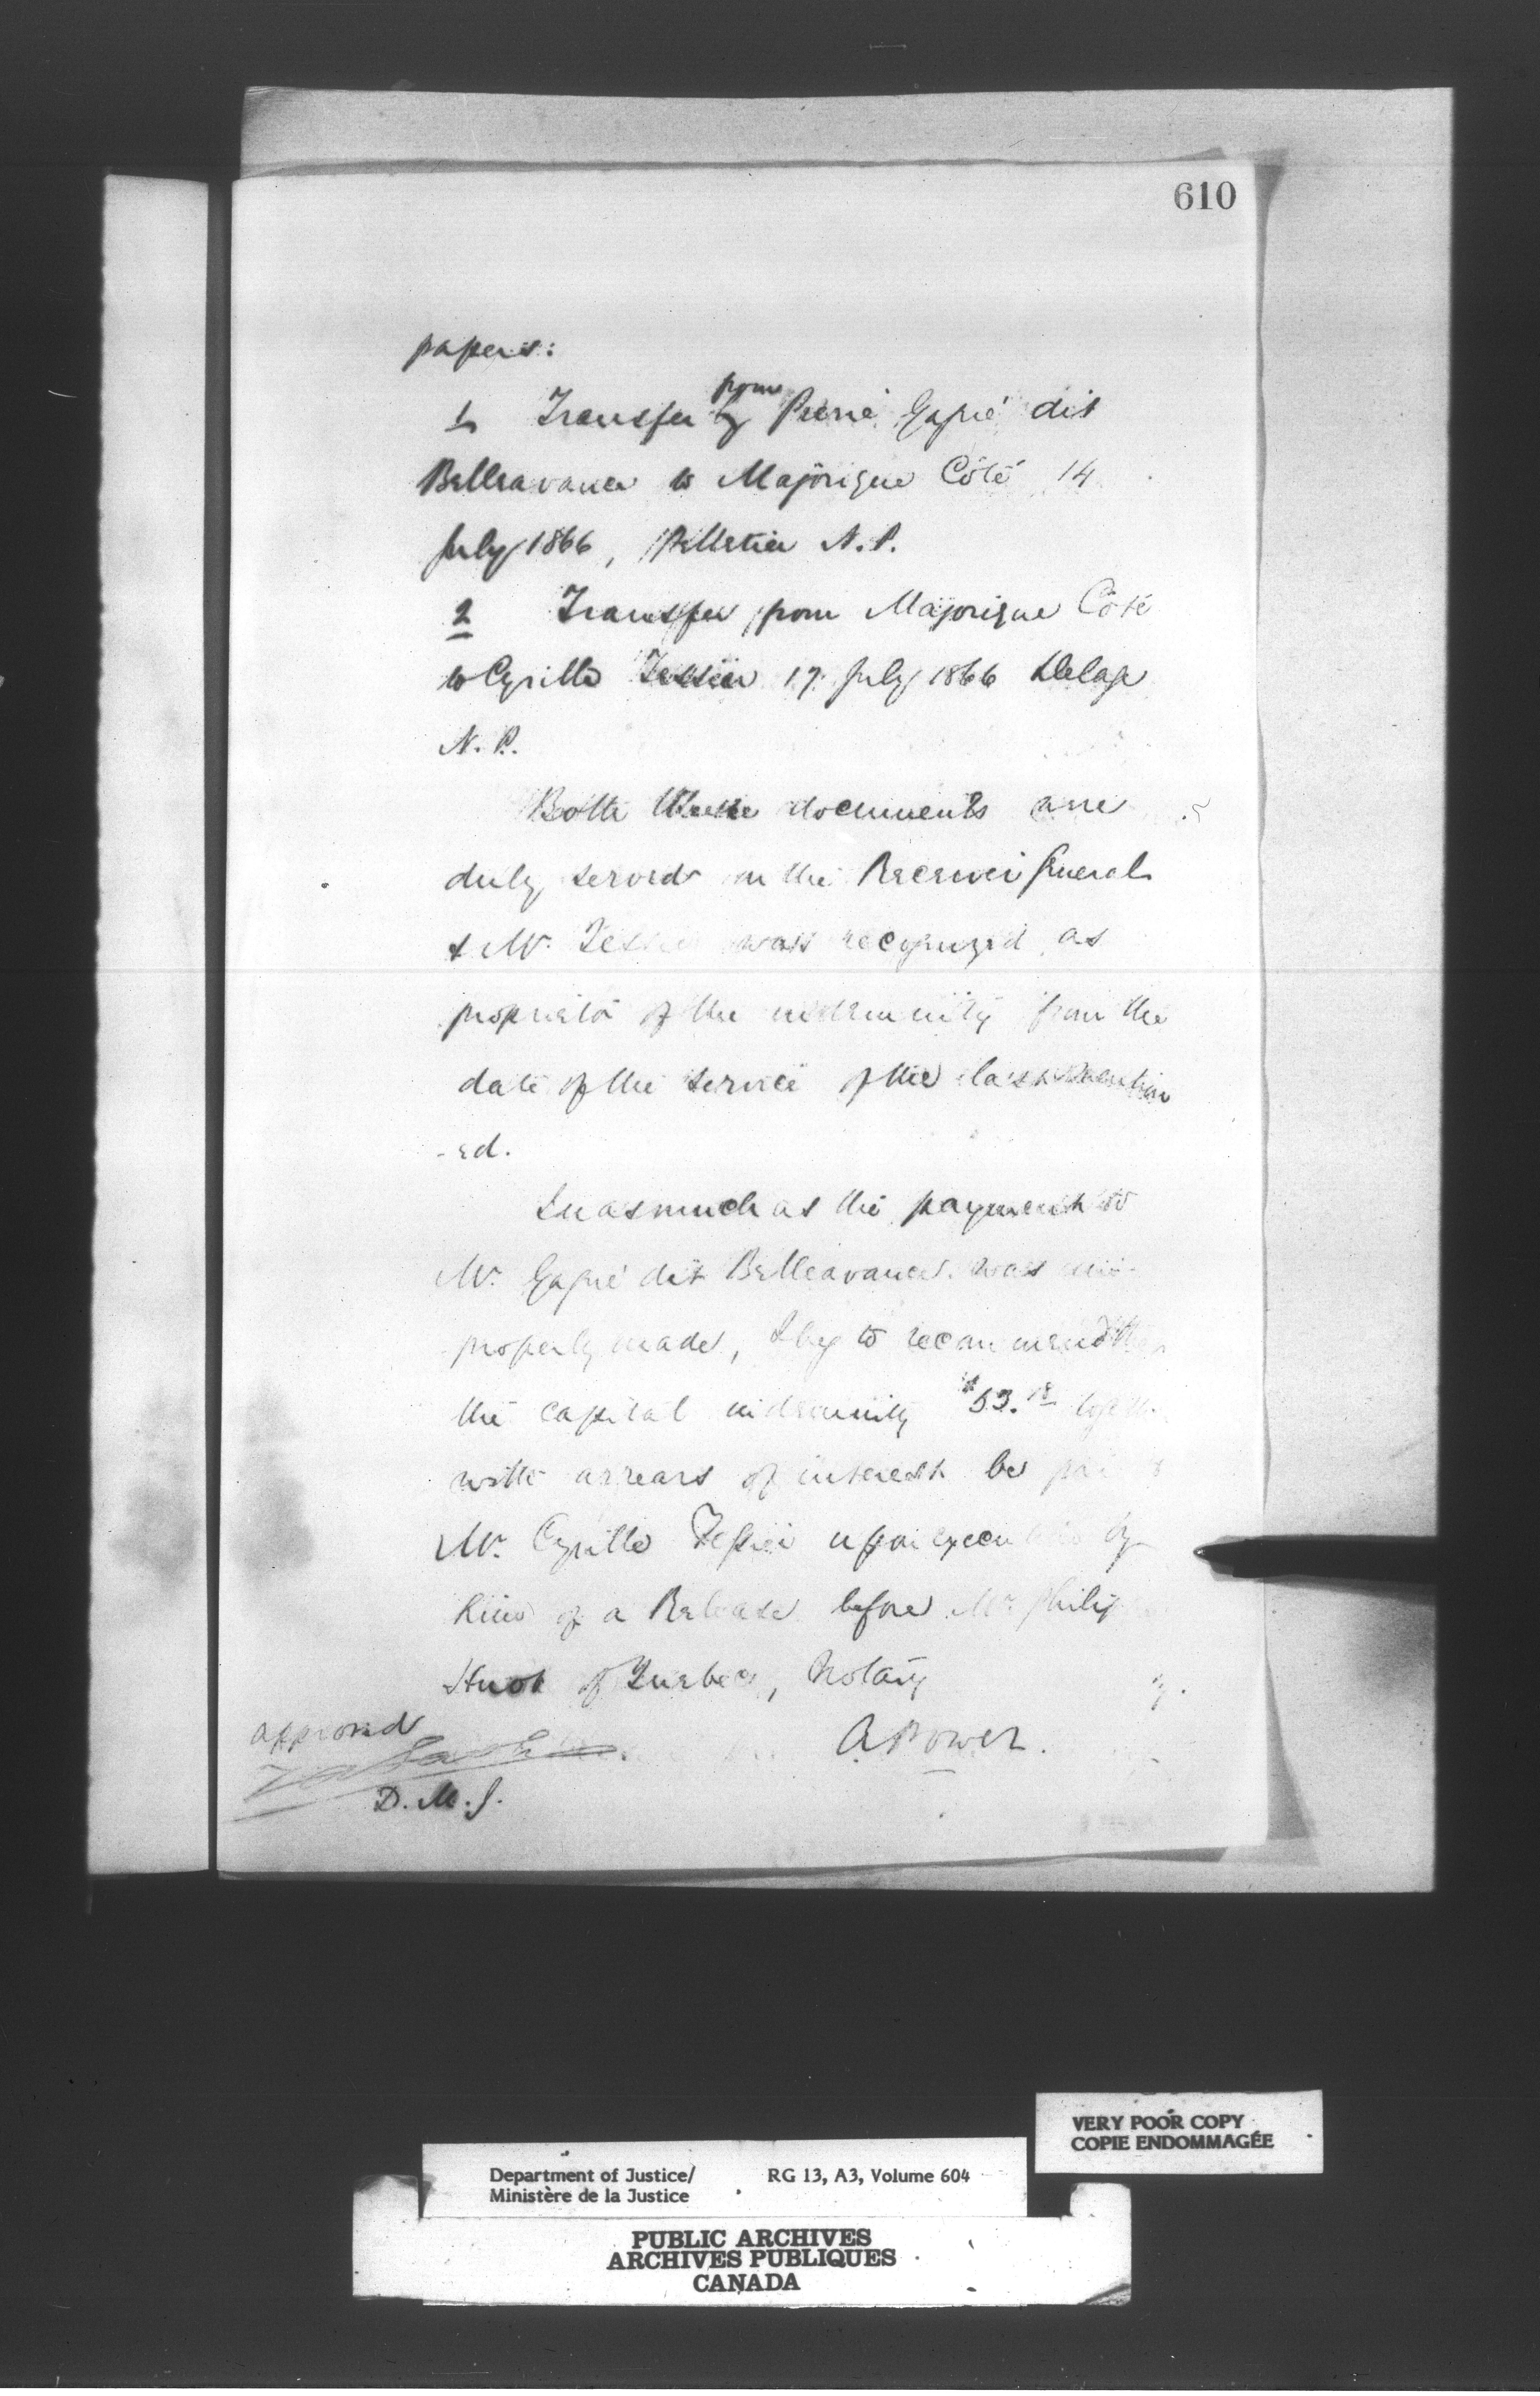 610
papers:
1 Transfer by from Pierre Gagné dit
Belleavance to Majorique Côté 14
July 1866, Pelletier N.P.
2 Transfer from Majorique Côté
to Cyrille Tessier 17 July 1866 Delage
N.P.
Both these documents are
duly served on the Receiver General
& Mr. Tessier was recognized as
proprietor of the indemnity from the
date of the service of the last mention
-ed.
Inasmuch as the payment to
Mr. Gagné dit Belleavance was im-
properly made, I beg to recommend that
the capital indemnity $53.18
with arrears of interest be
Mr. Cyrille Tessier upon execution by
him of a Release before Mr. Philip
Huot of Quebec, Notary
approved
A. Power.
D.M.J.
VERY POOR COPY
COPIE ENDOMMAGÉE
Department of Justice/ RG 13, A3, Volume 604
Ministère de la Justice
PUBLIC ARCHIVES
ARCHIVES PUBLIQUES
CANADA